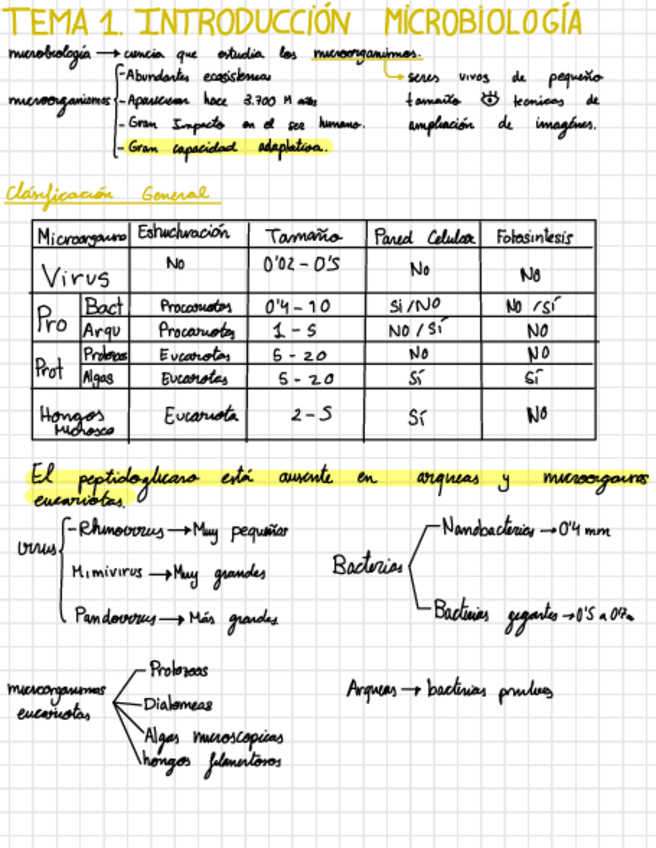 TEMA 1. INTRODUCCIÓN MICROBIOLOGÍA
microbiología → ciencia que estudia los microorganismos.
seres vivos de pequeño
tamaño tecnicas de
ampliación de imagénes.
microorganismos
- Abundantes ecosistemas
- Aparecieron hace 3.700 M años
- Gran Impacto en el ser humano.
- Gran capacidad adaptativa.
Clasificación General
Microorganismo Estructuración Tamaño Pared Celular Fotosintesis
Virus No 0'02 - 0'5 No No
Pro Bact Procariotas 0'4 - 10 Si/NO No /SÍ
Arqu Procariotas 1 - 5 NO / SÍ NO
Prot Protozoos Eucariotas 5 - 20 No NO
Algas Eucariotas 5 - 20 SÍ SÍ
Hongos Microsco Eucariota 2 - 5 SÍ NO
El peptidoglicano está ausente en arqueas y microorganos
eucariotas.
virus
- Rhinovirus → Muy pequeños
Mimivirus → Muy grandes
Pandovirus → Más grandes
Bacterias
Nanobacterias → 0'4 mm
Bacterias gigantes → 0'5 a
microorganismos
eucariotas
Protozoos
Diatomeas
Algas microscopicas
hongos filamentosos
Arqueas → bacterias